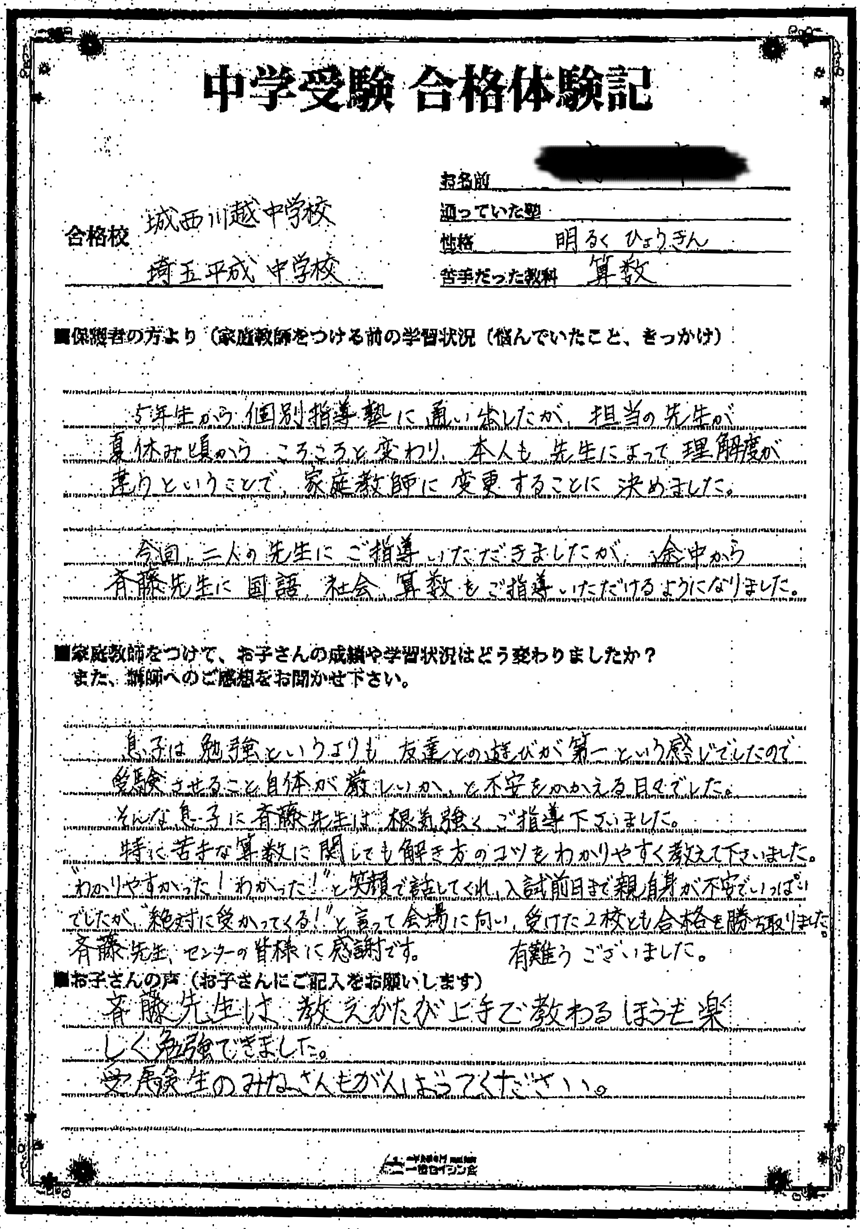 中学受験 合格体験記
お名前
通っていた塾
合格校 城西川越中学校
埼玉平成中学校
性格 明るくひょうきん
苦手だった教科 算数
■保護者の方より(家庭教師をつける前の学習状況(悩んでいたこと、きっかけ)
5年生から個別指導塾に通い出したが、担当の先生が
夏休み頃からころころと変わり、本人も先生によって理解度が
違うということで、家庭教師に変更することに決めました。
今回、二人の先生にご指導いただきましたが、途中から
斉藤先生に国語、社会、算数をご指導いただけるようになりました。
■家庭教師をつけて、お子さんの成績や学習状況はどう変わりましたか?
また、講師へのご感想をお聞かせ下さい。
息子は勉強というよりも友達との遊びが第一という感じでしたので
受験させること自体が厳しいか、と不安をかかえる日々でした。
そんな息子に斉藤先生は根気強くご指導下さいました。
特に苦手な算数に関しても解き方のコツをわかりやすく教えて下さいました。
"わかりやすかった!わかった!"と笑顔で話してくれ、入試前日まで親自身が不安でいっぱい
でしたが、"絶対に受かってくる!"と言って会場に向い、受けた2校とも合格を勝ち取りました。
斉藤先生、センターの皆様に感謝です。 有難うございました。
■お子さんの声(お子さんにご記入をお願いします)
斉藤先生は教えかたが上手で教わるほうも楽
しく勉強できました。
受験生のみなさんもがんばってください。
一橋セイシン会